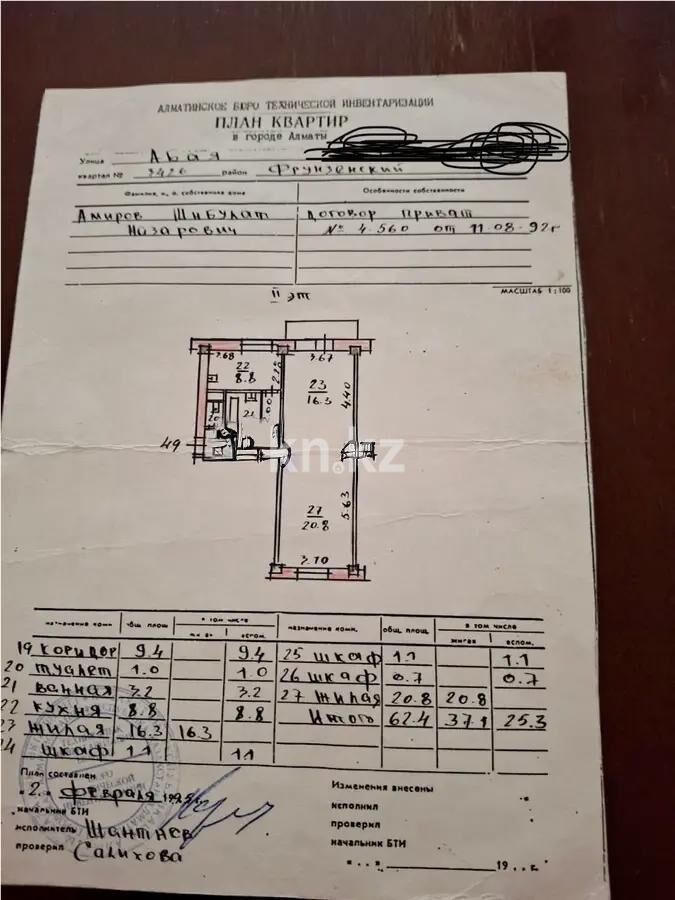 АЛМАТИНСКОЕ БЮРО ТЕХНИЧЕСКОЙ ИНВЕНТАРИЗАЦИИ
ПЛАН КВАРТИР
в городе Алматы
Улица Абая
квартал № 3426 район Фрунзенский
Фамилия, и, о. собственника Особенности собственности
Амиров Шибулат Договор приват
Низарович № 4.560 от 11.08.92г
II эт
МАСШТАБ 1:100
3.68 3.67
22
8.8
2.28
23
16.3
4.40
20 21
49
kn.kz
27
20.8
5.63
3.70
назначение комн общ. площ в том числе назначение комн. общ. площ. в том числе
вспом. жилая вспом.
19 коридор 9.4 9.4 25 шкаф 1.1 1.1
20 туалет 1.0 1.0 26 шкаф 0.7 0.7
21 ванная 3.2 3.2 27 жилая 20.8 20.8
22 кухня 8.8 8.8 Итого 62.4 37.1 25.3
23 жилая 16.3 16.3
24 шкаф 1.1 1.1
План составлен
"2" февраля
начальник БТИ
исполнитель Шантаев
проверил Салихова
Изменения внесены
исполнил
проверил
начальник БТИ
19 г.